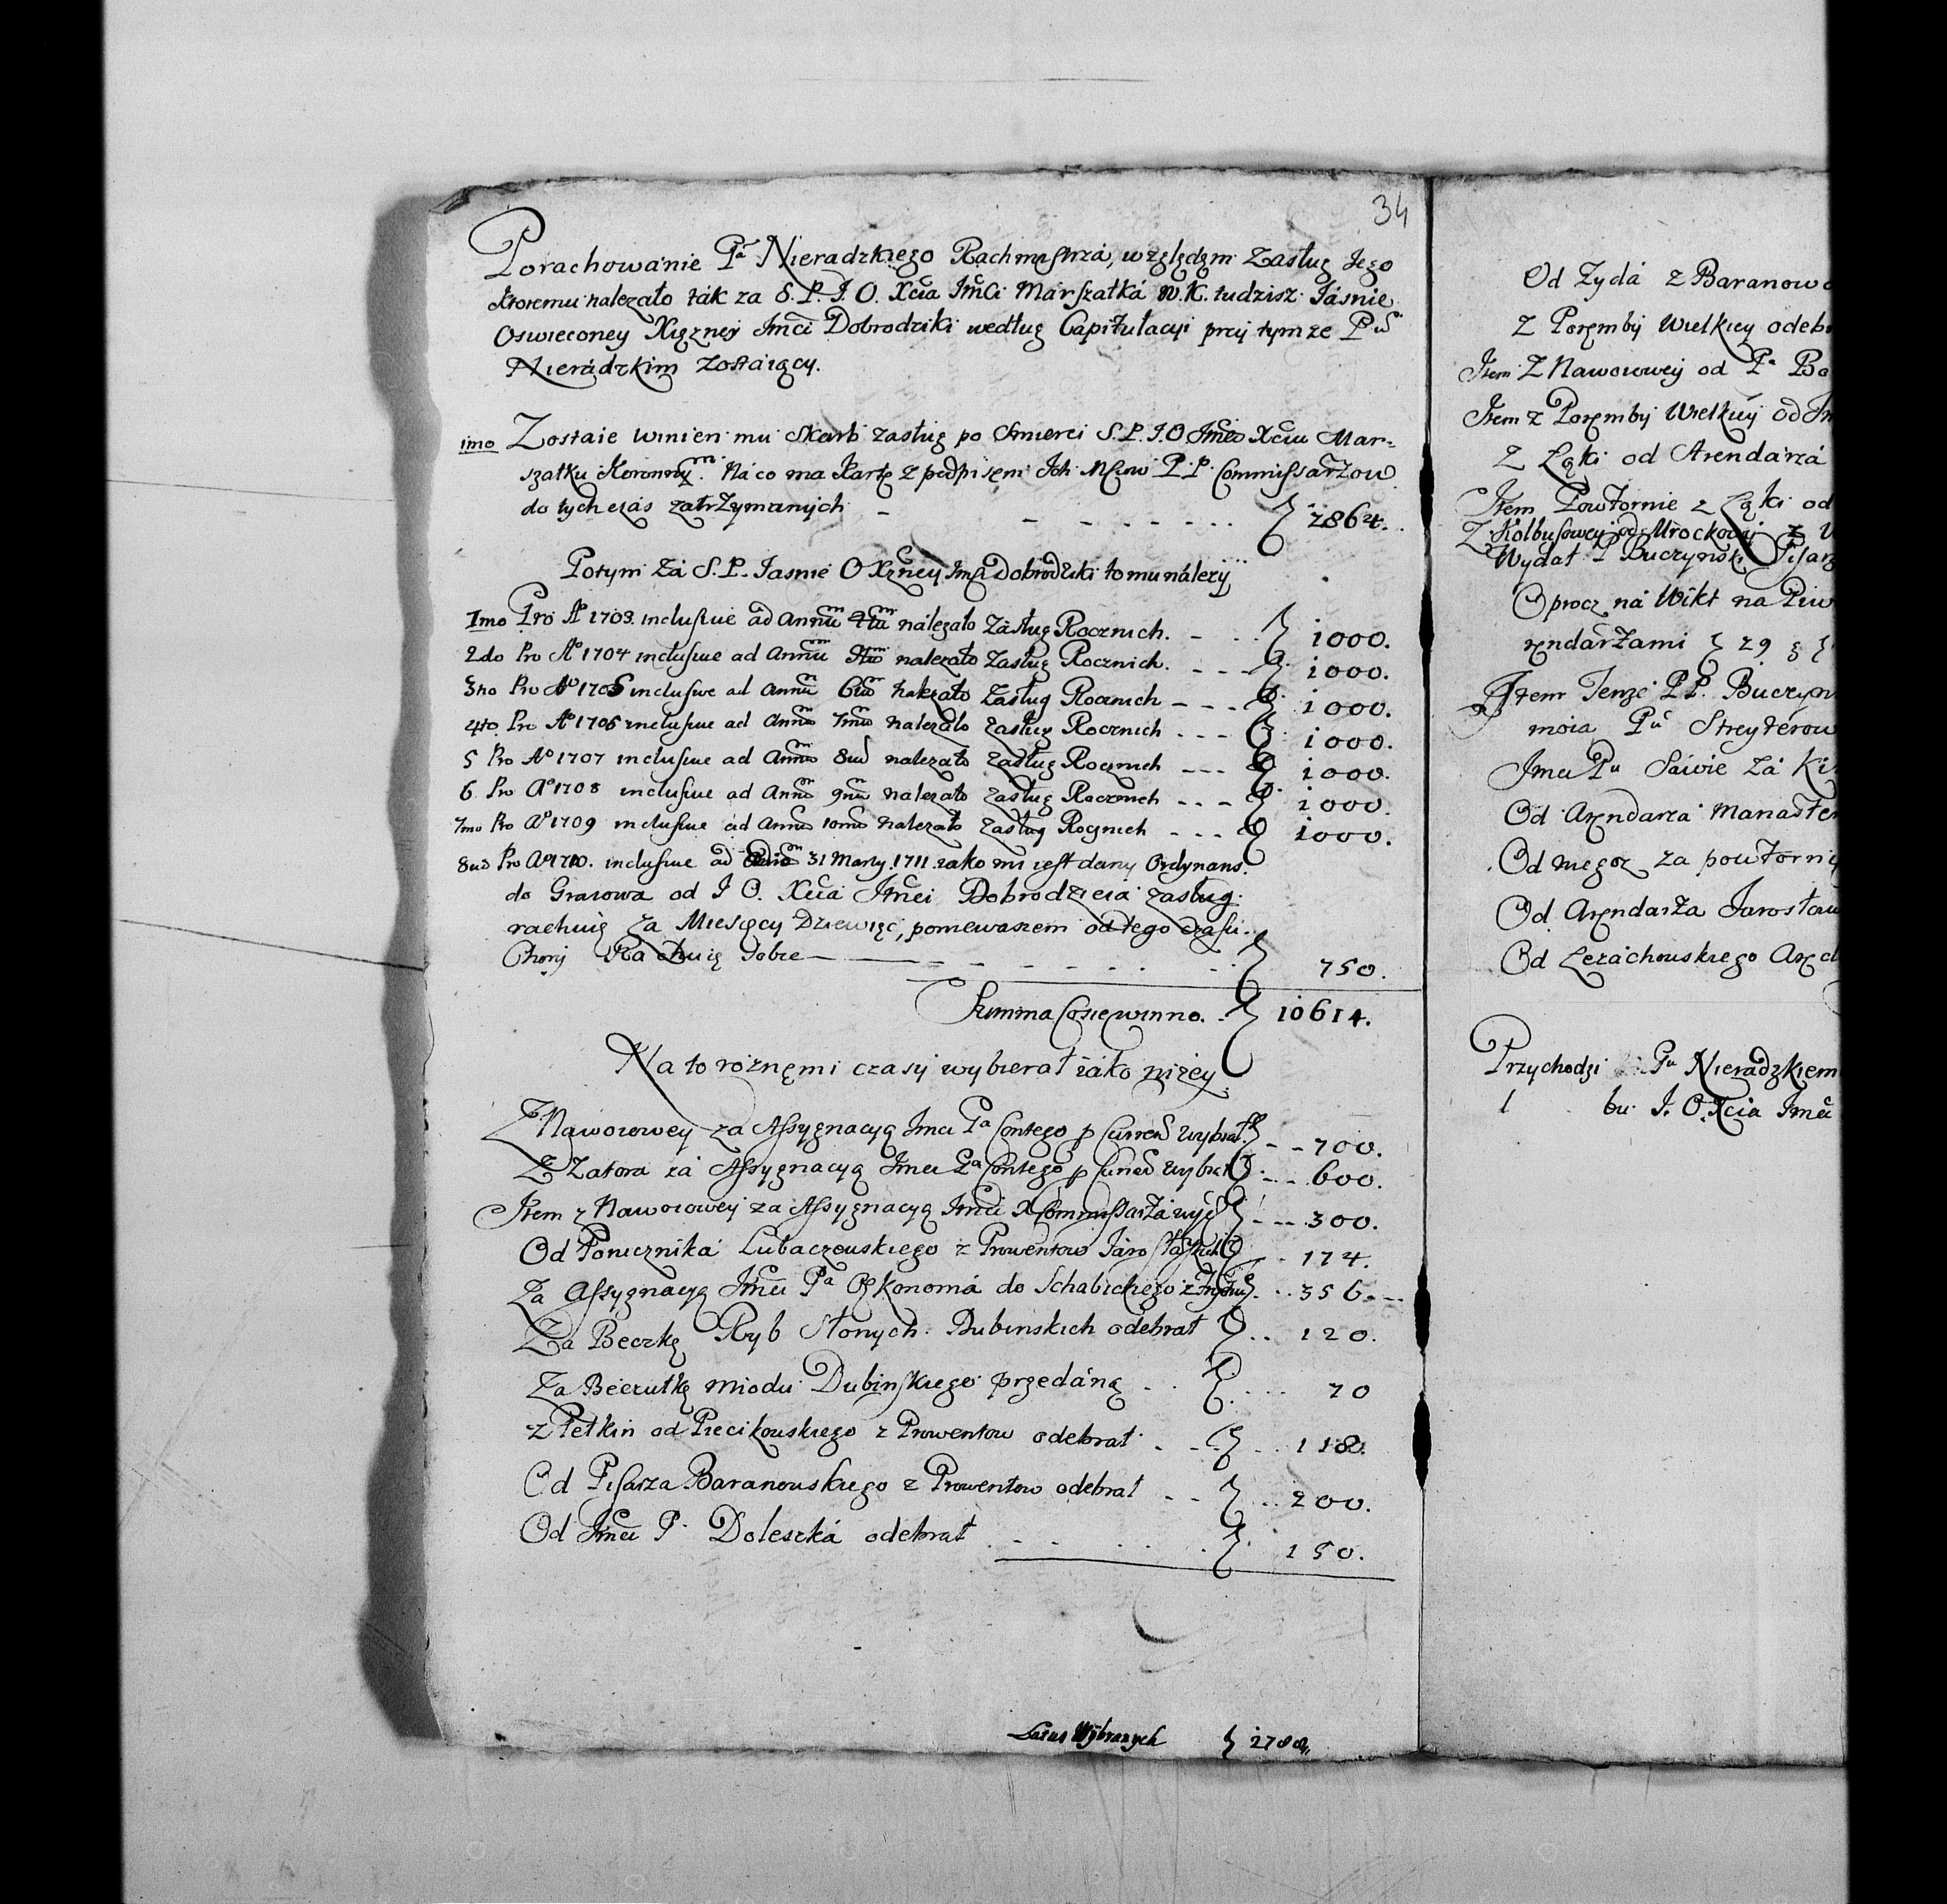 34
Porachowanie Pa Nieradzkiego Rachmistrza, względem Zasług Jego
ktoremu nalezało ták za S. P. J. O. Xcia Jmci Marszałká W. K. tudzisz Jáśnie
Oswieconey Xięzney Jmci Dobrodziki według Capitulacyi przy tymze Pu
Nierádzkim zostáiący.
1mo Zostaie winien mu Skarb zasług po Smierci S. P. J. O Jmci Xciu Mar-
szałku Koronnym. Ná co ma Kartę z podpisem Ich Mciow P. P. Commissarzow
do tych czás zatrzymanych - - - - - - 2864.
Potym zá S. P. Jasnie O Xzney Jmci Dobrodziki to mu nálezy
1mo Pro Ao 1703. inclusive ad Annum 4tum nálezało Zásług Rocznich. - 1000.
2do Pro Ao 1704 inclusive ad Annum 5tum nalezało Zasług Rocznich. - - - 1000.
3tio Pro Ao 1705 inclusive ad Annum 6tum nalezało Zasług Rocznich - - - 1000.
4to. Pro Ao 1706 inclusive ad Annum 7mum nalezało zasług Rocznich - - - 1000.
5 Pro Ao 1707 inclusive ad Annum 8um nalezało zasług Rocznich - - - 1000.
6 Pro Ao 1708 inclusive ad Annum 9num nalezało zasług Rocznich - - - 1000.
7mo Pro Ao 1709 inclusive ad Annum 10mum nalezało zasług Rocznich - - - 1000.
8vo Pro Ao 1710. inclusive ad 31 Marty. 1711. iako mi iest dany Ordynans.
do Grasowa od J O. Xcia Jmci Dobrodzieia zasług
rachuię za Miesięcy Dziewięć, poniewaszem od tego czasu
Chory Rachuię sobie - - - - - 750.
Summa Co sie winno. - 10614.
Na to roznęmi czasy wybierał iáko nizey
Z Nawoiowey za Assygnacyą Jmci Pa Contego wybrał - - 700.
Z Zatora zá Assygnacyą Jmci Pa Contego wybrał - - 600.
Item z Nawoiowey za Assygnacyą Jmci X Commissarża - - - 300.
Od Ponicznika Lubaczewskiego z Prowentow Járosławskich - 174.
Za Assygnacyą Jmci Pa Oekonomá do Schabickiego - 356.--
Za Beczkę Ryb Słonych Dubinskich odebrał . . 120.
Za Beczułkę miodu Dubinskiego przedáną . . . . . 70
z Pełkiń od Piecikowskiego z Prowentow odebrał . - . . 118.
Od Pisarza Baranowskiego z Prowentow odebrał - - . . 200.
Od Jmci P. Doleszká odebrał . . . . . 150.
Latus Wybranych 2788
Od Zydá z Baranow
Z Porębby Wielkiey odeb
Item Z Nawoiowey od Pa Bo
Item z Porembÿ Wielkiey od Jm
Z Łąki od Arendarzá
Item Powtornie z Łąki od
Z Kolbusowey od Mrockowy z
Wydał P Buczynski Pisarz
Oprocz ná Wikt na Piw
rendarżami 29
Item Tenze PP. Buczyn
moia Pu Streyterow
Jmci Pu Sáwie zá Ki
Od Arendarza Manaster
Od niegoz za powtorn
Od Arendarża Jarosław
Od Lezáchowskiego Arend
Przychodzi Pu Nieradzkiem
bu J. O. Xcia Jmci